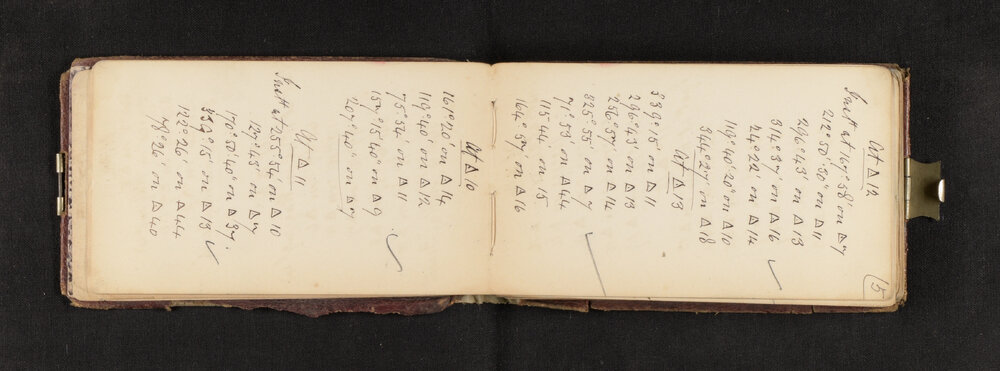 15
At Δ 12
Inst at 167° 58' on Δ 7
212° 50' 30" on Δ 11
296° 43' on Δ 13
314° 37' on Δ 16
24° 22' on Δ 14
119° 40' 20" on Δ 10
344° 27' on Δ 18
At Δ 13
339° 15' on Δ 11
296° 43' on Δ 13
256° 57' on Δ 13
325° 55' on Δ 7
71° 53' on Δ 44
115° 44' on 15
164° 57' on Δ 16
At Δ 10
161° 26' on Δ 14
119° 40' on Δ 12
75° 54' on Δ 11
157° 15' 40" on Δ 9
207° 40' on Δ 7
At Δ 11
Inst at 255° 54 on Δ 10
127° 43' on Δ 7
170° 50' 40" on Δ 37.
339° 15' on Δ 13
122° 26' on Δ 44
78° 26' on Δ 40